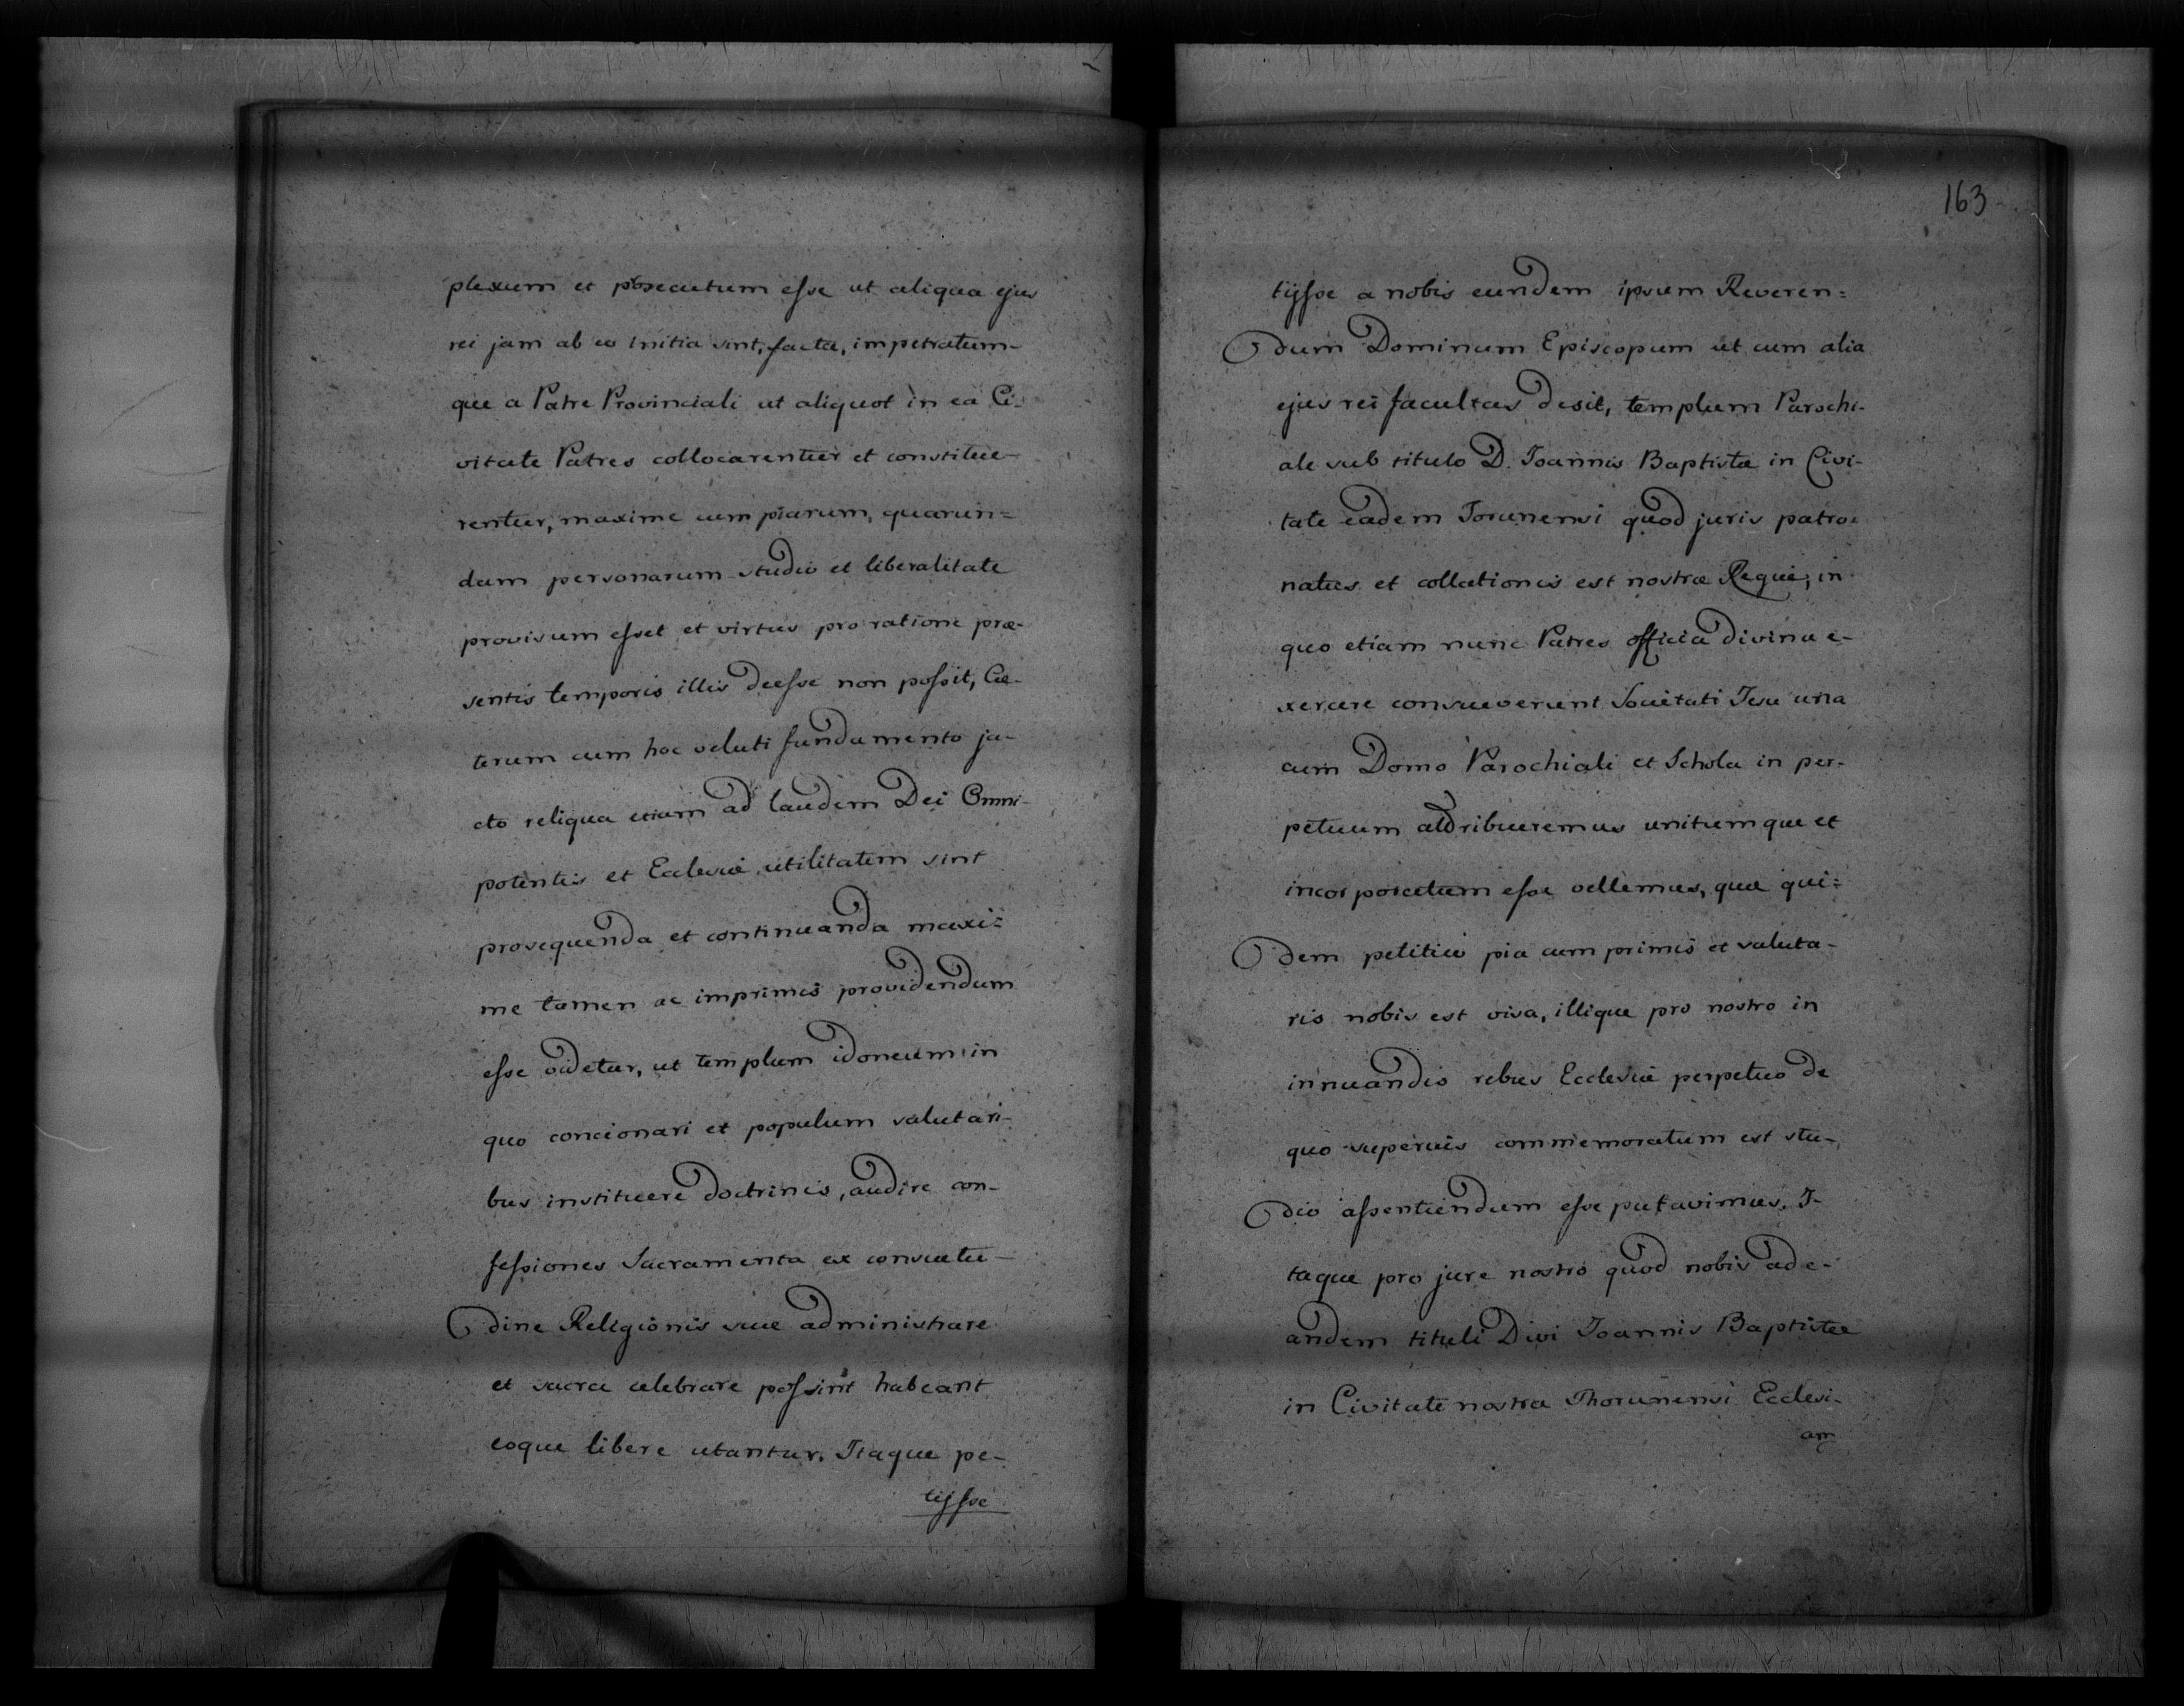 plexum et prosecutum esse ut aliqua ejus
rei jam ab eo initia sint, facta, impetratum-
que a Patre Provinciali ut aliquot in ea Ci-
vitate Patres collocarentur et constitue-
rentur, maxime cum piarum, quarun=
dam personarum studio et liberalitate
provisum esset et virtus pro ratione præ-
sentis temporis illis deesse non possit, Cæ-
terum cum hoc veluti fundamento ja-
cto reliqua etiam ad laudem Dei Omni-
potentis et Ecclesiæ utilitatem sint
prosequenda et continuanda maxi=
me tamen ac imprimis providendum
esse videtur, ut templum idoneum in
quo concionari et populum salutari-
bus instituere doctrinis, audire con-
fessiones Sacramenta ex consuetu-
dine Religionis suæ administrare
et sacra celebrare possint habeant
eoque libere utantur. Itaque pe-
tijsse
163
tijsse a nobis eundem ipsum Reveren=
dum Dominum Episcopum ut cum alia
ejus rei facultas desit, templum Parochi-
ale sub titulo D. Joannis Baptistæ in Civi-
tate eadem Torunensi quod juris patro=
natus et collationis est nostræ Regiæ, in
quo etiam nunc Patres officia divina e-
xercere consueverunt Societati Jesu una
cum Domo Parochiali et Schola in per-
petuum attribueremus unitumque et
incorporatum esse vellemus, quæ qui=
dem petitio pia cum primis et saluta-
ris nobis est visa, illique pro nostro in
innuandis rebus Ecclesiæ perpetuo de
quo superius commemoratum est stu-
dio assentiendum esse putavimus. I-
taque pro jure nostro quod nobis ad e-
andem tituli Divi Joannis Baptistæ
in Civitate nostra Thorunensi Ecclesi-
am